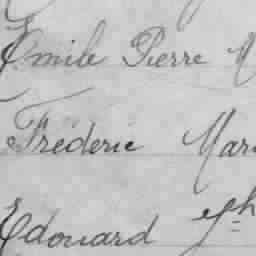 Emile Pierre M
Fréderic Mar
Edouard